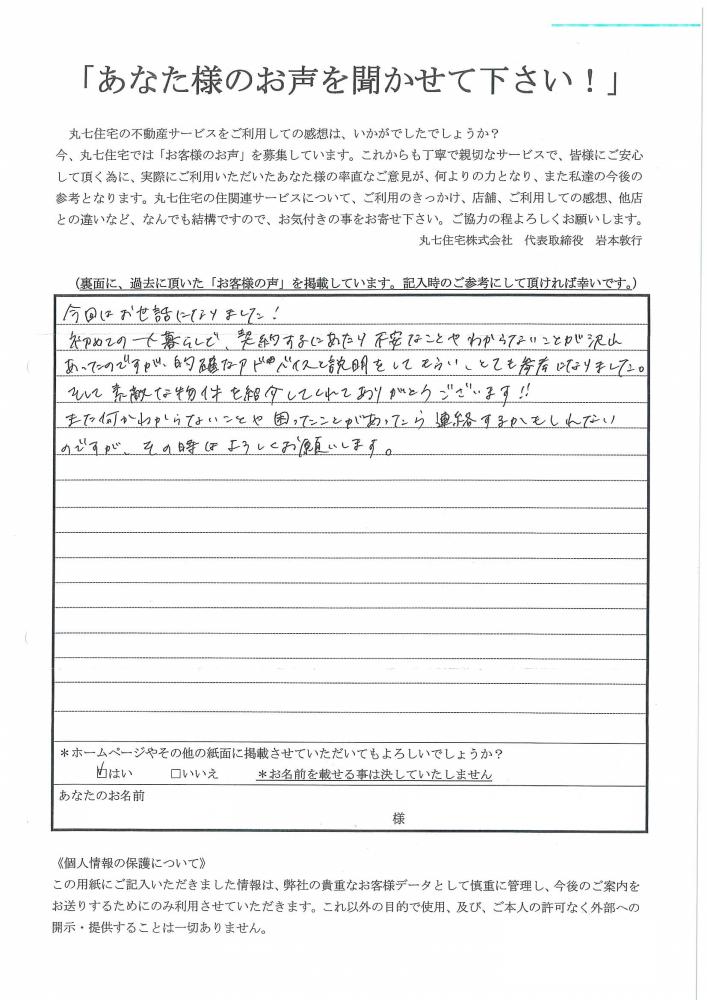 「あなた様のお声を聞かせて下さい！」
丸七住宅の不動産サービスをご利用しての感想は、いかがでしたでしょうか？
今、丸七住宅では「お客様のお声」を募集しています。これからも丁寧で親切なサービスで、皆様にご安心
して頂く為に、実際にご利用いただいたあなた様の率直なご意見が、何よりの力となり、また私達の今後の
参考となります。丸七住宅の住関連サービスについて、ご利用のきっかけ、店舗、ご利用しての感想、他店
との違いなど、なんでも結構ですので、お気付きの事をお寄せ下さい。ご協力の程よろしくお願いします。
丸七住宅株式会社　代表取締役　岩本敦行
（裏面に、過去に頂いた「お客様の声」を掲載しています。記入時のご参考にして頂ければ幸いです。）
今回はお世話になりました！
初めての一人暮らしで、契約するにあたり不安なことやわからないことが沢山
あったのですが、的確なアドバイスと説明をしてもらい、とても参考になりました。
そして素敵な物件を紹介してくれてありがとうございます!!
また何かわからないことや困ったことがあったら連絡するかもしれない
のですが、その時はよろしくお願いします。
＊ホームページやその他の紙面に掲載させていただいてもよろしいでしょうか？
☑はい　□いいえ　＊お名前を載せる事は決していたしません
あなたのお名前
様
《個人情報の保護について》
この用紙にご記入いただきました情報は、弊社の貴重なお客様データとして慎重に管理し、今後のご案内を
お送りするためにのみ利用させていただきます。これ以外の目的で使用、及び、ご本人の許可なく外部への
開示・提供することは一切ありません。